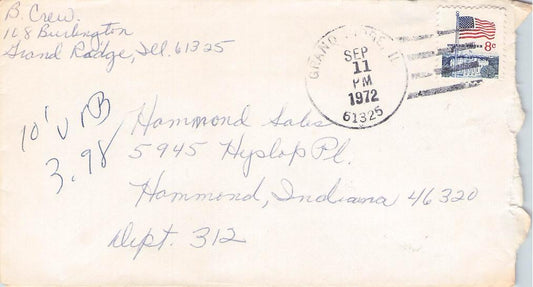 B. Crew
168 Burlington
Grand Ridge, Ill. 61325
GRAND RIDGE, IL
SEP
11
PM
1972
61325
8c
10'
3.98
Hammond Sales
5945 Hyslop Pl.
Hammond, Indiana 46320
Dept. 312